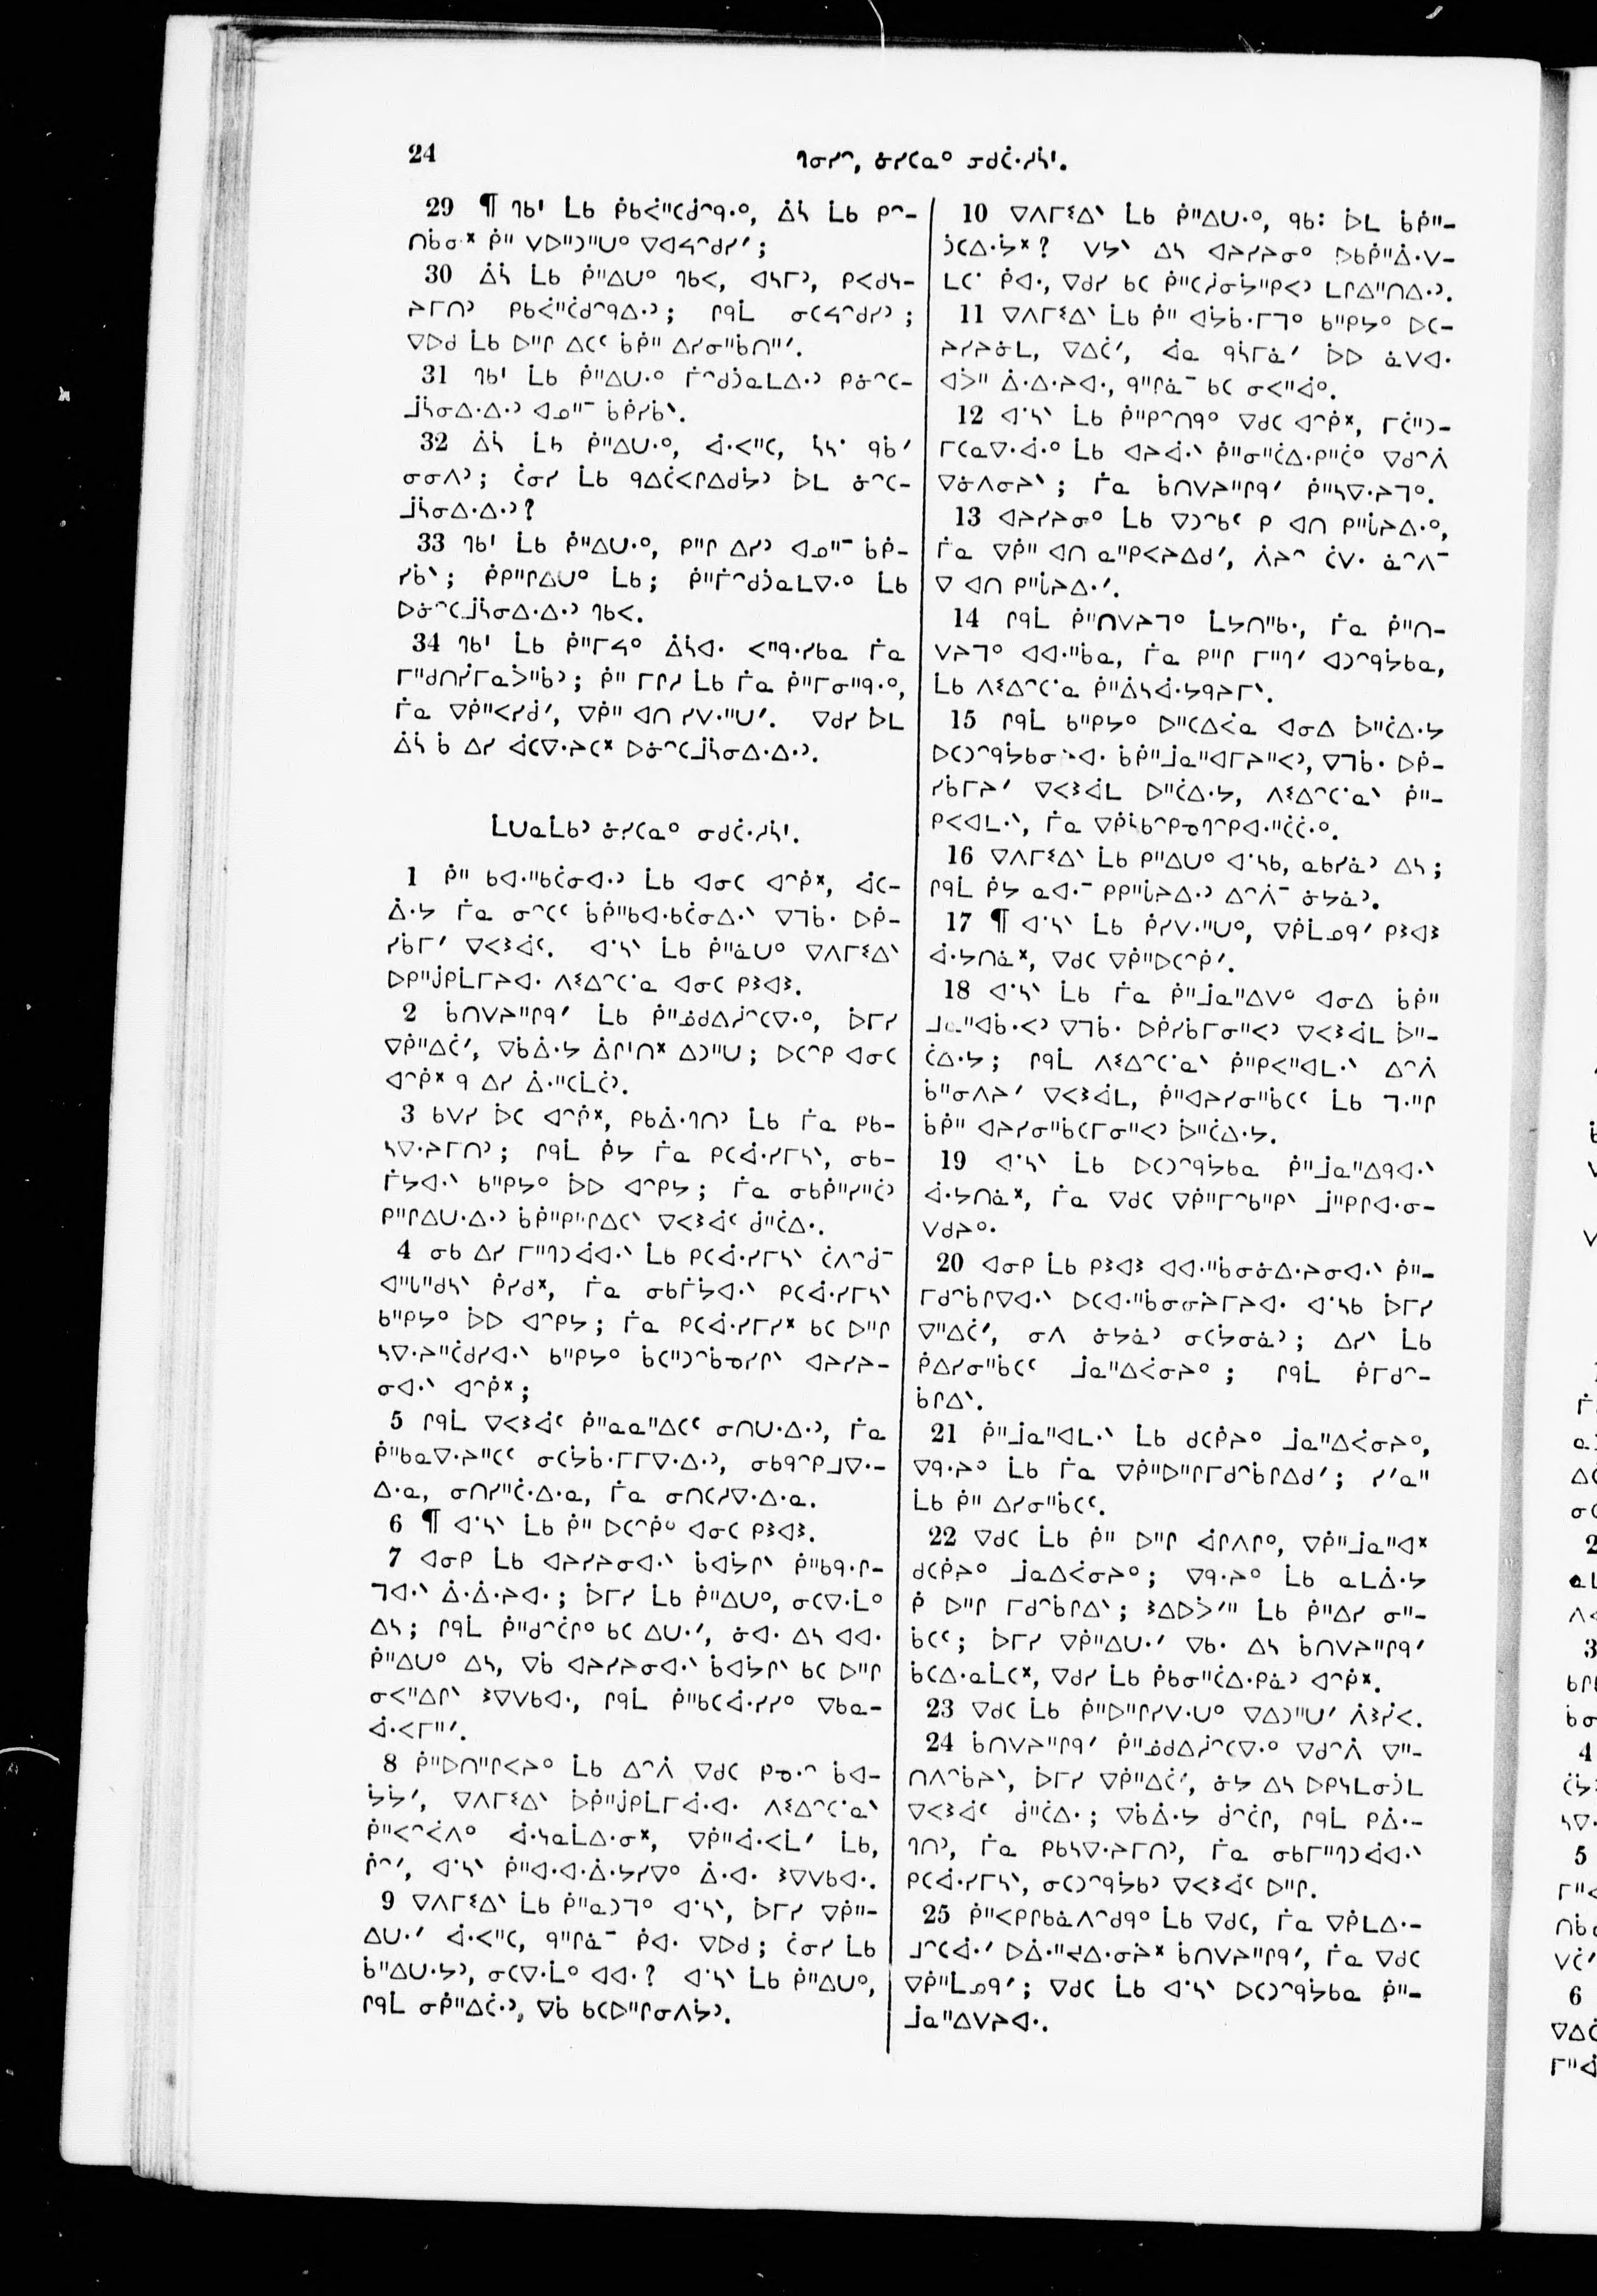 24
ᒉᓂᓯᐢ, ᓃᓯᑕᓇᐤ ᓂᑯᑖᐧᓱᓵᑊ.
29 ¶ ᒉᑲᑊ ᒫᑲ ᑮᑲᐹᐦᑕᑰᐢᑫᐧᐤ, ᐄᓵ ᒫᑲ ᑭᐢ-
ᑎᑳᓂᕽ ᑮᐦ ᐯᐅᐦᑐᐦᑌᐤ ᐁᐊᔦᐢᑯᓯᐟ;
30 ᐄᓵ ᒫᑲ ᑮᐦᐃᑌᐤ ᒉᑲᐸ, ᐊᓴᒥᐣ, ᑭᐸᑯᓴ-
ᔨᒥᑎᐣ ᑭᑲᐹᐦᑖᑯᐢᑫᐃᐧᐣ; ᒋᑫᒫ ᓂᑕᔦᐢᑯᓯᐣ;
ᐁᐅᑯ ᒫᑲ ᐅᐦᒋ ᐃᑕᑦ ᑳᑮᐦ ᐃᓯᓂᐦᑳᑎᐦᐟ.
31 ᒉᑲᑊ ᒫᑲ ᑮᐦᐃᑌᐧᐤ ᒦᐢᑯᑑᓇᒪᐃᐧᐣ ᑭᓃᐢᑕ-
ᒨᓵᓂᐃᐧᐃᐧᐣ ᐊᓄᐦᐨ ᑳᑮᓯᑳᐠ.
32 ᐄᓵ ᒫᑲ ᑮᐦᐃᑌᐧᐤ, ᐋᐧᐸᐦᑕ, ᓵᓴᐩ ᑫᑳᐟ
ᓂᓂᐱᐣ; ᑖᓂᓯ ᒫᑲ ᑫᐃᑖᐸᒋᐃᑰᔭᐣ ᐆᒪ ᓃᐢᑕ-
ᒨᓵᓂᐃᐧᐃᐧᐣ?
33 ᒉᑲᑊ ᒫᑲ ᑮᐦᐃᑌᐧᐤ, ᑭᐦᒋ ᐃᓯᐣ ᐊᓄᐦᐨ ᑳᑮ-
ᓯᑳᐠ; ᑮᑭᐦᒋᐃᑌᐤ ᒫᑲ; ᑮᐦᒦᐢᑯᑑᓇᒪᐁᐧᐤ ᒫᑲ
ᐅᓃᐢᑕᒨᓵᓂᐃᐧᐃᐧᐣ ᒉᑲᐸ.
34 ᒉᑲᑊ ᒫᑲ ᑮᐦᒥᔦᐤ ᐄᓵᐊᐧ ᐸᐦᑫᐧᓯᑲᓇ ᒦᓇ
ᒥᐦᑯᑎᓰᒥᓇᐴᐦᑳᐣ; ᑮᐦ ᒥᒋᓱ ᒫᑲ ᒦᓇ ᑮᐦᒥᓂᐦᑫᐧᐤ,
ᒦᓇ ᐁᑮᐦᐸᓯᑰᐟ, ᐁᑮᐦ ᐊᑎ ᓯᐯᐧᐦᑌᐟ. ᐁᑯᓯ ᐆᒪ
ᐄᓵ ᑳ ᐃᓯ ᐋᑕᐁᐧᔨᑕᕽ ᐅᓃᐢᑕᒨᓵᓂᐃᐧᐃᐧᐣ.
ᒫᑌᓇᒫᑲᐣ ᓃᓯᑕᓇᐤ ᓂᑯᑖᐧᓱᓵᑊ.
1 ᑮᐦ ᑲᐊᐧᐦᑲᑖᓂᐊᐧᐣ ᒫᑲ ᐊᓂᑕ ᐊᐢᑮᕽ, ᐋᑕ-
ᐄᐧᔭ ᒦᓇ ᓂᐢᑕᑦ ᑳᑮᐦᑲᐊᐧᑲᑖᓂᐃᐧᐠ ᐁᒣᑳᐧ ᐅᑮ-
ᓯᑳᒥᐟ ᐁᐸᕒᐋᑦ. ᐊᐩᓴᐠ ᒫᑲ ᑮᐦᓈᑌᐤ ᐁᐱᒥᓬᐃᐠ
ᐅᑭᐦᒎᑭᒫᒥᔨᐊᐧ ᐱᓬᐃᐢᑕᐩᓇ ᐊᓂᑕ ᑭᕒᐊᕒ.
2 ᑳᑎᐯᔨᐦᒋᑫᐟ ᒫᑲ ᑮᐦᓅᑯᐃᓲᐢᑕᐁᐧᐤ, ᐆᒥᓯ
ᐁᑮᐦᐃᑖᐟ, ᐁᑳᐄᐧᔭ ᐄᒋᑊᑎᕽ ᐃᑐᐦᑌ; ᐅᑕᐢᑭ ᐊᓂᑕ
ᐊᐢᑮᕽ ᑫ ᐃᓯ ᐄᐧᐦᑕᒫᑖᐣ.
3 ᑲᐯᓯ ᐆᑕ ᐊᐢᑮᕽ, ᑭᑲᐄᐧᒉᑎᐣ ᒫᑲ ᒦᓇ ᑭᑲ-
ᓴᐁᐧᔨᒥᑎᐣ; ᒋᑫᒫ ᑮᔭ ᒦᓇ ᑭᑕᐋᐧᓯᒥᓴᐠ, ᓂᑲ-
ᒦᔭᐊᐧᐠ ᑲᐦᑭᔭᐤ ᐆᐅ ᐊᐢᑭᔭ; ᒦᓇ ᓂᑲᑮᐦᓯᐦᑖᐣ
ᑭᐦᒋᐃᑌᐧᐃᐧᐣ ᑳᑮᐦᑭᐦᒋᐃᑕᐠ ᐁᐸᕒᐋᑦ ᑰᐦᑖᐃᐧ.
4 ᓂᑲ ᐃᓯ ᒥᐦᒉᑐᐋᐊᐧᐠ ᒫᑲ ᑭᑕᐋᐧᓯᒥᓴᐠ ᑖᐱᐢᑰᐨ
ᐊᐦᒐᐦᑯᓴᐠ ᑮᓯᑯᕽ, ᒦᓇ ᓂᑲᒦᔭᐊᐧᐠ ᑭᑕᐋᐧᓯᒥᓴᐠ
ᑲᐦᑭᔭᐤ ᐆᐅ ᐊᐢᑭᔭ; ᒦᓇ ᑭᑕᐋᐧᓯᒥᓯᕽ ᑲᑕ ᐅᐦᒋ
ᓴᐁᐧᔨᐦᑖᑯᓯᐊᐧᐠ ᑲᐦᑭᔭᐤ ᑳᑕᐦᑐᐢᑳᓀᓯᒋᐠ ᐊᔨᓯᔨ-
ᓂᐊᐧᐠ ᐊᐢᑮᕽ;
5 ᒋᑫᒫ ᐁᐸᕒᐋᑦ ᑮᐦᓇᓇᐦᐃᑕᑦ ᓂᑎᑌᐧᐃᐧᐣ, ᒦᓇ
ᑮᐦᑲᓇᐁᐧᔨᐦᑕᑦ ᓂᑕᔮᑳᐧᒥᒥᐁᐧᐃᐧᐣ, ᓂᑲᑫᐢᑭᒧᐁᐧ-
ᐃᐧᓇ, ᓂᑎᓯᐦᑖᐧᐃᐧᓇ, ᒦᓇ ᓂᑎᑕᓱᐁᐧᐃᐧᓇ.
6 ¶ ᐊᐩᓴᐠ ᒫᑲ ᑮᐦ ᐅᑕᐢᑮᐤ ᐊᓂᑕ ᑭᕒᐊᕒ.
7 ᐊᓂᑭ ᒫᑲ ᐊᔨᓯᔨᓂᐊᐧᐠ ᑳᐊᔮᒋᐠ ᑮᐦᑲᑫᐧᒋ-
ᒣᐊᐧᐠ ᐄᐧᐄᐧᔨᐊᐧ; ᐆᒥᓯ ᒫᑲ ᑮᐦᐃᑌᐤ, ᓂᑕᐁᐧᒫᐤ
ᐃᓴ; ᒋᑫᒫ ᑮᐦᑯᐢᑖᒋᐤ ᑲᑕ ᐃᑌᐧᐟ, ᓃᐊᐧ ᐃᓴ ᐊᐊᐧ
ᑮᐦᐃᑌᐤ ᐃᓴ, ᐁᑳ ᐊᔨᓯᔨᓂᐊᐧᐠ ᑳᐊᔮᒋᐠ ᑲᑕ ᐅᐦᒋ
ᓂᐸᐦᐃᒋᐠ ᕒᐁᐯᑲᐊᐧ, ᒋᑫᒫ ᑮᐦᑲᑕᐋᐧᓯᓯᐤ ᐁᑲᓇ-
ᐋᐧᐸᒥᐦᐟ.
8 ᑮᐦᐅᑎᐦᒋᐸᔨᐤ ᒫᑲ ᐃᐢᐲ ᐁᑯᑕ ᑭᓀᐧᐢ ᑳᐊ-
ᔮᔮᐟ, ᐁᐱᒥᓬᐃᐠ ᐆᑮᐦᒎᑭᒫᒥᐋᐧᐊᐧ ᐱᓬᐃᐢᑕᐩᓇᐠ
ᑮᐦᐸᐢᐹᐱᐤ ᐋᐧᓴᓇᒫᐃᐧᓂᕽ, ᐁᑮᐦᐋᐧᐸᒫᐟ ᒫᑲ,
ᑮᐢᐟ, ᐊᐩᓴᐠ ᑮᐦᐊᐧᐊᐧᐄᐧᔭᓯᐁᐤ ᐄᐧᐊᐧ ᕒᐁᐯᑲᐊᐧ.
9 ᐁᐱᒥᓬᐃᐠ ᒫᑲ ᑮᐦᓇᑐᒣᐤ ᐊᐩᓴᐠ, ᐆᒥᓯ ᐁᑮᐦ-
ᐃᑌᐧᐟ ᐋᐧᐸᐦᑕ, ᑫᐦᒋᓈᐨ ᑮᐊᐧ ᐁᐅᑯ; ᑖᓂᓯ ᒫᑲ
ᑳᐦᐃᑌᐧᔭᐣ, ᓂᑕᐁᐧᒫᐤ ᐊᐊᐧ? ᐊᐩᓴᐠ ᒫᑲ ᑮᐦᐃᑌᐤ,
ᒋᑫᒫ ᓂᑮᐦᐃᑖᐧᐣ, ᐁᑳ ᑲᑕᐅᐦᒋᓂᐱᔮᐣ.
10 ᐁᐱᒥᓬᐃᐠ ᒫᑲ ᑮᐦᐃᑌᐧᐤ, ᑫᑲᐧ ᐆᒪ ᑳᑮᐦ-
ᑑᑕᐃᐧᔮᕽ? ᐯᔭᐠ ᐃᓴ ᐊᔨᓯᔨᓂᐤ ᐅᑲᑮᐦᐄᐧᐯ-
ᒪᑕᐩ ᑮᐊᐧ, ᐁᑯᓯ ᑲᑕ ᑮᐦᑕᓲᓂᔮᐦᑭᐸᐣ ᒪᒋᐃᐦᑎᐃᐧᐣ.
11 ᐁᐱᒥᓬᐃᐠ ᒫᑲ ᑮᐦ ᐊᔮᑳᐧᒥᒣᐤ ᑲᐦᑭᔭᐤ ᐅᑕ-
ᔨᓯᔨᓃᒪ, ᐁᐃᑖᐟ, ᐋᓇ ᑫᓵᒥᓈᐟ ᐆᐅ ᓈᐯᐊᐧ
ᐊᐴᐦ ᐄᐧᐃᐧᔨᐊᐧ, ᑫᐦᒋᓈᐨ ᑲᑕ ᓂᐸᐦᐋᐤ.
12 ᐊᐩᓴᐠ ᒫᑲ ᑮᐦᑭᐢᑎᑫᐤ ᐁᑯᑕ ᐊᐢᑮᕽ, ᒥᑖᐦᑐ-
ᒥᑕᓇᐁᐧᐋᐧᐤ ᒫᑲ ᐊᔨᐋᐧᐠ ᑮᐦᓂᐦᑖᐃᐧᑭᐦᑖᐤ ᐁᑯᐢᐲ
ᐁᓃᐱᓂᔨᐠ; ᒦᓇ ᑳᑎᐯᔨᐦᒋᑫᐟ ᑮᐦᓴᐁᐧᔨᒣᐤ.
13 ᐊᔨᓯᔨᓂᐤ ᒫᑲ ᐁᑐᐢᑲᑦ ᑭ ᐊᑎ ᑭᐦᒑᔨᐃᐧᐤ,
ᒦᓇ ᐁᑮᐦ ᐊᑎ ᓇᐦᑭᐸᔨᐃᑯᐟ, ᐲᔨᐢ ᑖᐯᐧ ᓈᐢᐱᐨ
ᐁ ᐊᑎ ᑭᐦᒑᔨᐃᐧᐟ.
14 ᒋᑫᒫ ᑮᐦᑎᐯᔨᒣᐤ ᒫᔭᑎᐦᑲᐧ, ᒦᓇ ᑮᐦᑎ-
ᐯᔨᒣᐤ ᐊᐊᐧᐦᑳᓇ, ᒦᓇ ᑭᐦᒋ ᒥᐦᒉᐟ ᐊᑐᐢᑫᔮᑲᓇ,
ᒫᑲ ᐱᓬᐃᐢᑕᐩᓇ ᑮᐦᐄᓴᐋᐧᔭᑫᔨᒥᐠ.
15 ᒋᑫᒫ ᑲᐦᑭᔭᐤ ᐅᐦᑕᐃᐹᓇ ᐊᓂᐃ ᐆᐦᑖᐃᐧᔭ
ᐅᑕᑐᐢᑫᔮᑲᓂᔨᐊᐧ ᑳᑮᐦᒨᓇᐦᐊᒥᔨᐦᐸᐣ, ᐁᒣᑳᐧ ᐅᑮ-
ᓯᑳᒥᔨᐟ ᐁᐸᕒᐋᒪ ᐅᐦᑖᐃᐧᔭ, ᐱᓬᐃᐢᑕᐩᓇᐠ ᑮᐦ-
ᑭᐸᐊᒪᐧᐠ, ᒦᓇ ᐁᑮᓵᑲᐢᑭᓀᒉᐢᑭᐊᐧᐦᑖᑖᐧᐤ.
16 ᐁᐱᒥᓬᐃᐠ ᒫᑲ ᑭᐦᐃᑌᐤ ᐊᐩᓴᑲ, ᓇᑲᓯᓈᐣ ᐃᓴ;
ᒋᑫᒫ ᑮᔭ ᓇᐊᐧᐨ ᑭᑭᐦᒑᔨᐃᐧᐣ ᐃᐢᐲᐨ ᓃᔭᓈᐣ.
17 ¶ ᐊᐩᓴᐠ ᒫᑲ ᑮᓯᐯᐧᐦᑌᐤ, ᐁᑮᒫᓄᑫᐟ ᑭᕒᐊᕒ
ᐋᐧᔭᑎᓈᕽ, ᐁᑯᑕ ᐁᑮᐦᐅᑕᐢᑮᐟ.
18 ᐊᐩᓴᐠ ᒫᑲ ᒦᓇ ᑮᐦᒨᓇᐦᐃᐯᐤ ᐊᓂᐃ ᑳᑮᐦ
ᒧᓇᐦᐊᑳᐧᐸᐣ ᐁᒣᑳᐧ ᐅᑮᓯᑳᒥᓂᐦᐸᐣ ᐁᐸᕒᐋᒪ ᐆᐦ-
ᑖᐃᐧᔭ; ᒋᑫᒫ ᐱᓬᐃᐢᑕᐩᓇᐠ ᑮᐦᑭᐸᐦᐊᒪᐧᐠ ᐃᐢᐲ
ᑳᐦᓂᐱᔨᐟ ᐁᐸᕒᐋᒪ, ᑮᐦᐊᔨᓯᓂᐦᑳᑕᑦ ᒫᑲ ᒣᐧᐦᒋ
ᑳᑮᐦ ᐊᔨᓯᓂᐦᑳᑕᒥᓂᐦᐸᐣ ᐆᐦᑖᐃᐧᔭ.
19 ᐊᐩᓴᐠ ᒫᑲ ᐅᑕᑐᐢᑫᔮᑲᓇ ᑮᐦᒨᓇᐦᐃᑫᐊᐧᐠ
ᐋᐧᔭᑎᓈᕽ, ᒦᓇ ᐁᑯᑕ ᐁᑮᐦᒥᐢᑲᐦᑭᐠ ᒨᐦᑭᒋᐊᐧᓂ-
ᐯᑯᔨᐤ.
20 ᐊᓂᑭ ᒫᑲ ᑭᕒᐊᕒ ᐊᐊᐧᐦᑳᓂᓃᐃᐧᔨᓂᐊᐧᐠ ᑮᐦ-
ᒥᑯᐢᑳᒋᐁᐊᐧᐠ ᐅᑕᐊᐧᐦᑳᓂᓂᔩᒥᔨᐊᐧ ᐊᐩᓴᑲ ᐆᒥᓯ
ᐁᐦᐃᑖᐟ, ᓂᐱ ᓃᔭᓈᐣ ᓂᑕᔮᓂᓈᐣ; ᐃᓯᐠ ᒫᑲ
ᑮᐃᓯᓂᐦᑳᑕᑦ ᒨᓇᐦᐃᐹᓂᔨᐤ; ᒋᑫᒫ ᑮᒥᑯᐢ-
ᑳᒋᐃᐠ.
21 ᑮᐦᒨᓇᐦᐊᒪᐧᐠ ᒫᑲ ᑯᑕᑮᔨᐤ ᒨᓇᐦᐃᐹᓂᔨᐤ,
ᐁᑫᐧᔨᐣ ᒫᑲ ᒦᓇ ᐁᑮᐦᐅᐦᒋᒥᑯᐢᑳᒋᐃᑯᐟ; ᓯᐟᓇᐦ
ᒫᑲ ᑮᐦ ᐃᓯᓂᐦᑳᑕᑦ.
22 ᐁᑯᑕ ᒫᑲ ᑮᐦ ᐅᐦᒋ ᐋᒋᐱᒋᐤ, ᐁᑮᐦᒨᓇᐦᐊᕽ
ᑯᑕᑮᔨᐤ ᒨᓇᐃᐹᓂᔨᐤ; ᐁᑫᐧᔨᐤ ᒫᑲ ᓇᒪᐄᐧᔭ
ᑮ ᐅᐦᒋ ᒥᑯᐢᑳᒋᐃᐠ; ᕒᐃᐅᐴᐟᐦ ᒫᑲ ᑮᐦᐃᓯ ᓂᐦ-
ᑳᑕᑦ; ᐆᒥᓯ ᐁᑮᐦᐃᑌᐧᐟ ᐁᑲᐧ ᐃᓴ ᑳᑎᐯᔨᐦᒋᑫᐟ
ᑳᑕᐃᐧᓇᒫᑕᕽ, ᐁᑯᓯ ᒫᑲ ᑮᑲᓂᐦᑖᐃᐧᑭᓈᐣ ᐊᐢᑮᕽ.
23 ᐁᑯᑕ ᒫᑲ ᑮᐦᐅᐦᒋᓯᐯᐧᑌᐤ ᐁᐃᑐᐦᑌᐟ ᐲᕒᓰᐸ.
24 ᑳᑎᐯᔨᐦᒋᑫᐟ ᑮᐦᓅᑯᐃᓲᐢᑕᐁᐧᐤ ᐁᑯᐢᐲ ᐁᐦ-
ᑎᐱᐢᑳᔨᐠ, ᐆᒥᓯ ᐁᑮᐦᐃᑖᐟ, ᓃᔭ ᐃᓴ ᐅᑭᓴᒪᓂᑑᒪ
ᐁᐸᕒᐋᑦ ᑰᐦᑖᐃᐧ; ᐁᑳᐄᐧᔭ ᑰᐢᑖᒋ, ᒋᑫᒫ ᑭᐄᐧ-
ᒉᑎᐣ, ᒦᓇ ᑭᑲᓴᐁᐧᔨᒥᑎᐣ, ᒦᓇ ᓂᑲᒥᐦᒉᑐᐋᐊᐧᐠ
ᑭᑕᐋᐧᓯᒥᓴᐠ, ᓂᑕᑐᐢᑫᔮᑲᐣ ᐁᐸᕒᐋᑦ ᐅᐦᒋ.
25 ᑮᐦᐸᑭᒋᑲᓈᐱᐢᑯᑫᐤ ᒫᑲ ᐁᑯᑕ, ᒦᓇ ᐁᑮᒪᐃᐧ-
ᒧᐢᑕᐋᐧᐟ ᐅᐄᐧᐦᔪᐃᐧᓂᔨᕽ ᑳᑎᐯᔨᐦᒋᑫᐟ, ᒦᓇ ᐁᑯᑕ
ᐁᑮᐦᒫᓄᑫᐟ; ᐁᑯᑕ ᒫᑲ ᐊᐩᓴᐠ ᐅᑕᑐᐢᑫᔮᑲᓇ ᑮᐦ-
ᒨᓇᐦᐃᐯᔨᐊᐧ.